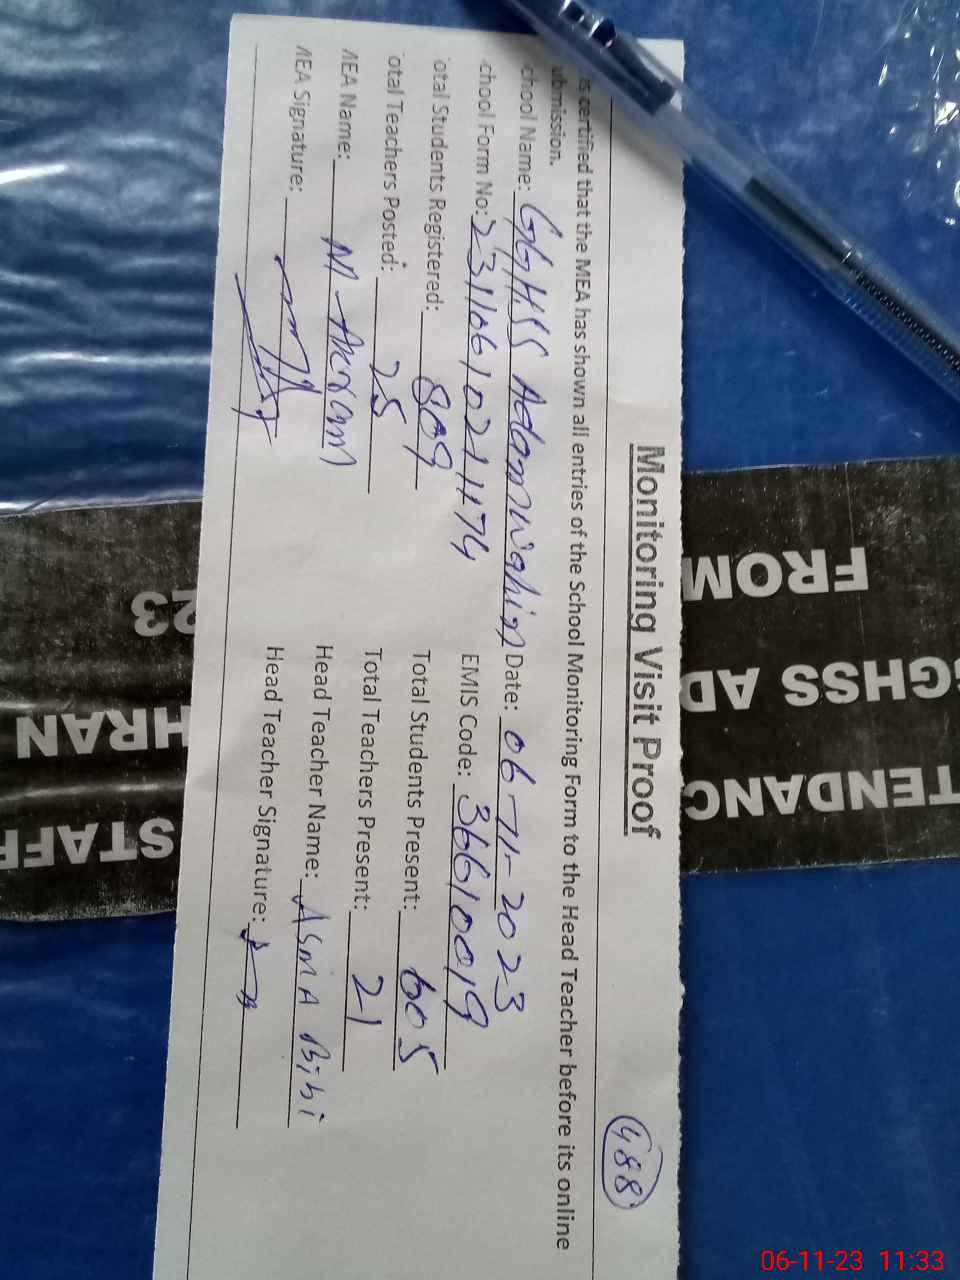 Monitoring Visit Proof
488
is certified that the MEA has shown all entries of the School Monitoring Form to the Head Teacher before its online
ubmission.
chool Name: GGHSS Adamwahin Date: 06-11-2023
chool Form No: 23110610211474 EMIS Code: 36610019
otal Students Registered: 809 Total Students Present: 605
otal Teachers Posted: 25 Total Teachers Present: 21
MEA Name: M Akram Head Teacher Name: Asma Bibi
MEA Signature: Head Teacher Signature:
TENDANC
STAFF
GHSS AD
HRAN
FROM
23
06-11-23 11:33